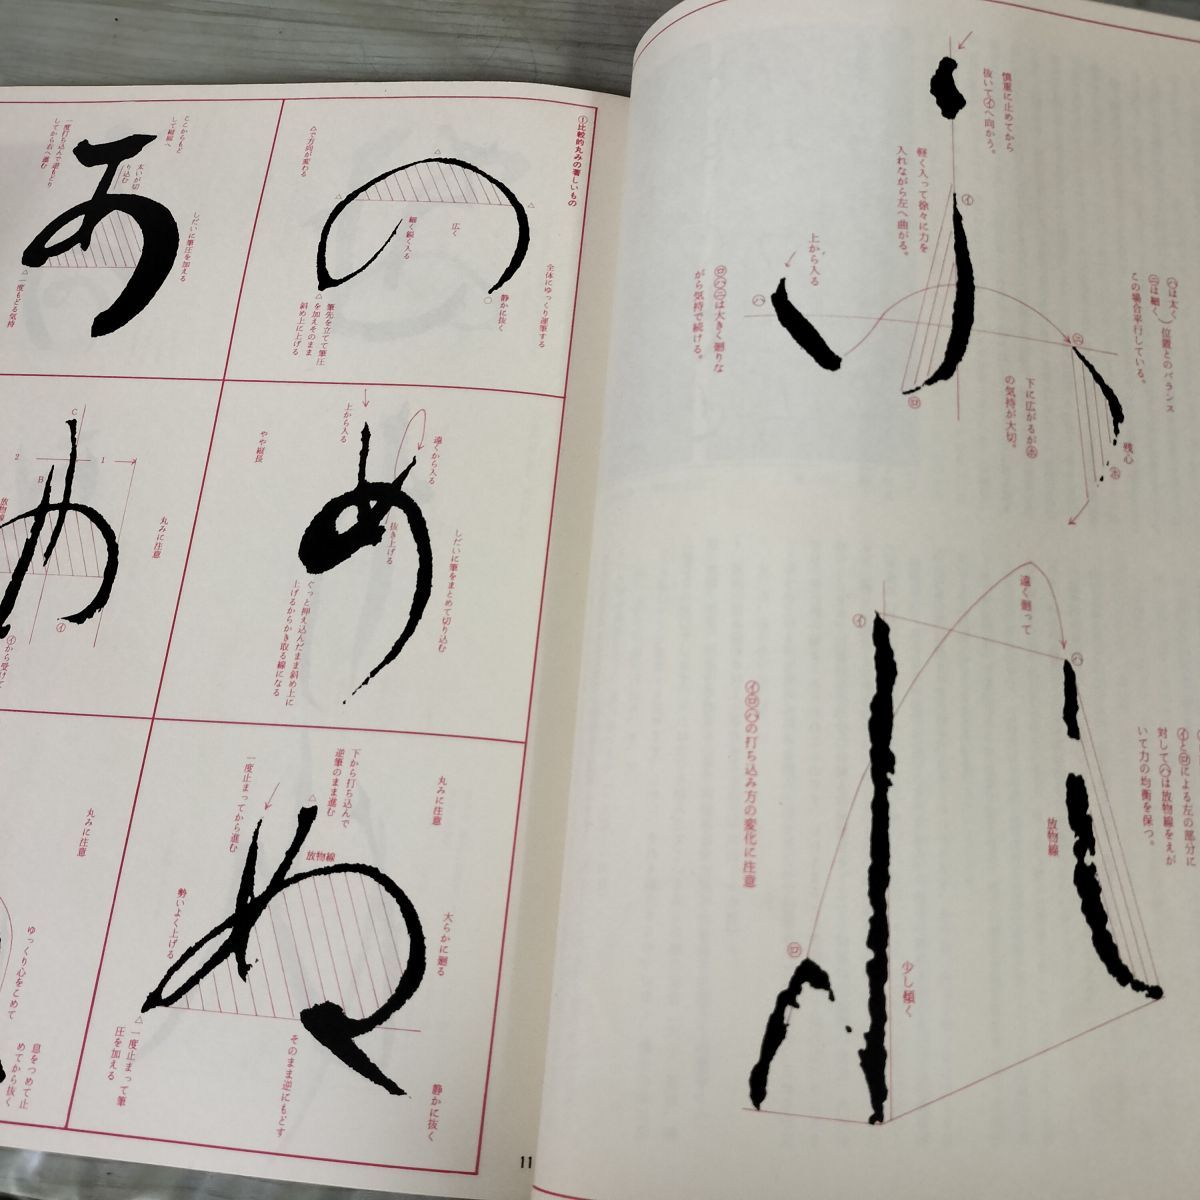 慎重に止めてから
抜いて㋑へ向かう。
㋑
軽く入って徐々に力を
入れながら左へ曲がる。
上から入る
㋺㋩㋥は大きく廻りな
がら気持で続ける。
㋩
㋺
㋩は太く
㋥は細く
位置とのバランス
この場合平行している。
㋥
下に広がるが㋭
の気持が大切。
残心
㋭
遠く廻って
㋑
㋩
㋑と㋺による左の部分に
対して㋩は放物線をえが
いて力の均衡を保つ。
放物線
㋑㋺㋩の打ち込み方の変化に注意
㋺
少し傾く
①比較的丸みの著しいもの
の
△で方向が変わる
広く
細く鋭く入る
全体にゆっくり運筆する
静かに抜く
筆先を立てて筆圧
を加えそのまま
斜め上に上げる
め
上から入る
遠くから入る
やや縦長
抜き上げる
しだいに筆をまとめて切り込む
ぐっと押え込んだまま斜め上に
上げるからかき取る線になる
ぬ
下から打ち込んで
逆筆のまま進む
一度止まってから進む
丸みに注意
放物線
勢いよく上げる
大らかに廻る
一度止まって筆
圧を加える
そのまま逆にもどす
静かに抜く
ここからもど
して縦線へ
一度打ち込んで逆もどり
してから右へ進む
太いが切
り込む
しだいに筆圧を加える
一度もどる気持
C
2
1
B
丸みに注意
放物線
㋑
㋑から受けて
丸みに注意
ゆっくり心をこめて
息をつめて止
めてから抜く
11